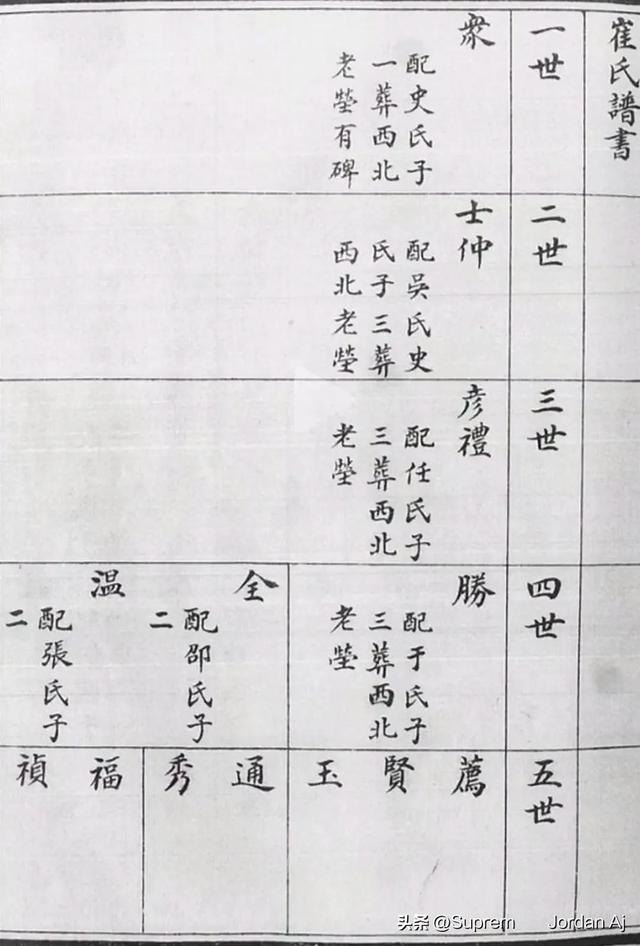 崔氏譜書
一世
衆
配史氏子
一葬西北
老塋有碑
二世
士仲
配吳氏史
氏子三葬
西北老塋
三世
彦禮
配任氏子
三葬西北
老塋
四世
勝
配于氏子
三葬西北
老塋
全
配邵氏子
二
温
配張氏子
二
五世
薦
賢
玉
通
秀
福
禎
头条 @Suprem Jordan Aj